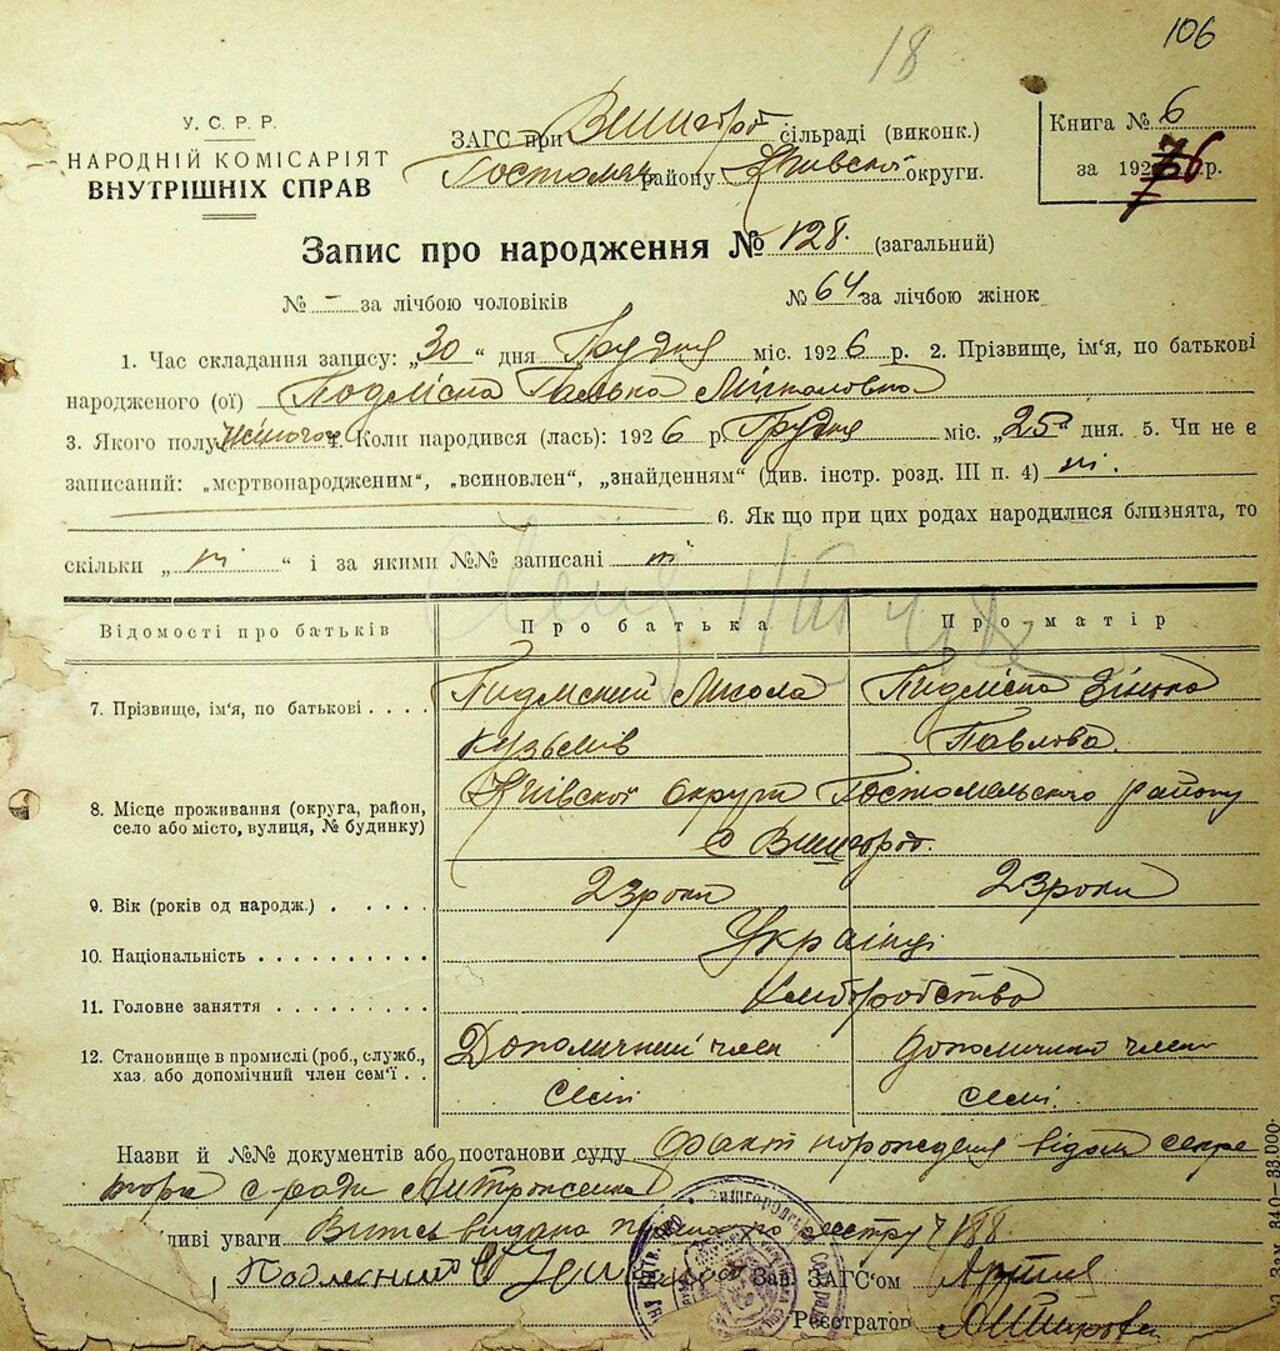 106
18
У. С. Р. Р.
НАРОДНІЙ КОМІСАРІЯТ
ВНУТРІШНІХ СПРАВ
ЗАГС при Вишгород сільраді (виконк.)
Гостомльск району Київскої округи.
Книга № 6
за 1926 р.
Запис про народження № 128. (загальний)
№ - за лічбою чоловіків № 64 за лічбою жінок
1. Час складання запису: „30“ дня Грудня міс. 1926 р. 2. Прізвище, ім'я, по батькові
народженого (ої) Подлісна Галька Миколовна
3. Якого полу Жіночог 4. Коли народився (лась): 1926 р. Грудня міс. „25“ дня. 5. Чи не є
записаний: „мертвонародженим“, „всиновлен“, „знайденням“ (див. інстр. розд. III п. 4) ні.
6. Як що при цих родах народилися близнята, то
скільки „ні“ і за якими №№ записані ні
Відомості про батьків Про батька Про матір
7. Прізвище, ім'я, по батькові . . . . Пидлісний Микола Пидлісна Зінька
Кузьмів Павлова.
8. Місце проживання (округа, район, село або місто, вулиця, № будинку) Київскої округи Гостомельского району
с Вишгород.
9. Вік (років од народж.) . . . . . 23 роки 23 роки
10. Національність . . . . . . . . . . Українці
11. Головне заняття . . . . . . . . . Хліборобство
12. Становище в промислі (роб., служб., хаз. або допомічний член сем'ї . . Допомічний член допомічний член
семі семі.
Назви й №№ документів або постанови суду Факт порождения відом секре
тора с ради Митрохенка
ливі уваги Витсь видана по реєстру ч 188.
Подлисний
Зав. ЗАГС'ом
Реєстратор